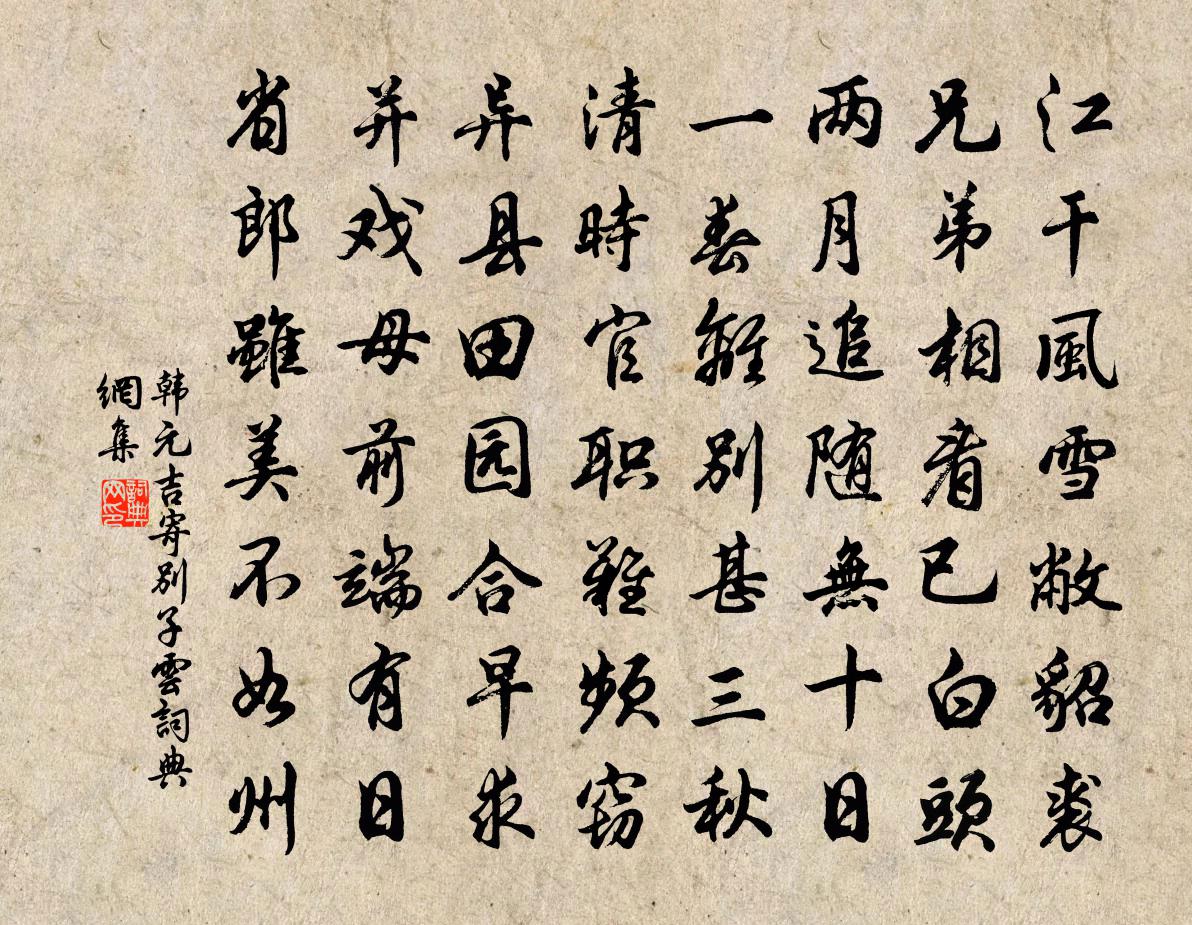 江干風雪敝貂裘
兄弟相看已白頭
两月追随無十日
一春離別甚三秋
清時官职難頻窃
异县田园合早求
并戏母前端有日
省郎雖美不如州
韩元吉寄别子雲詞典
網集
詞典
网印